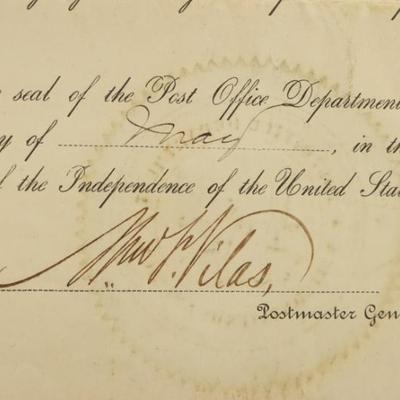 seal of the Post Office Department
y of May, in the
f the Independence of the United Stat
Wm F. Vilas,
Postmaster Gen